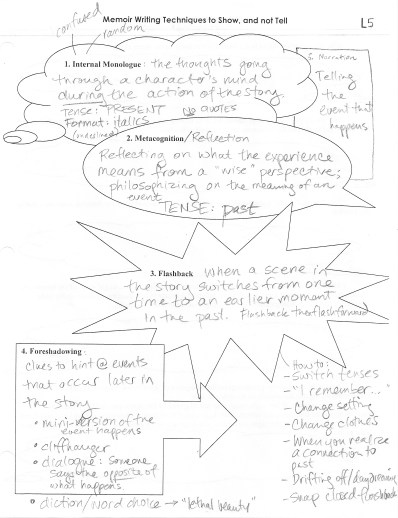 confused
random
Memoir Writing Techniques to Show, and not Tell
L5
1. Internal Monologue: the thoughts going
through a character's mind
during the action of the story.
Tense: PRESENT no QUOTES
Format: italics
(underlined)
5. Narration
Telling
the
event that
happens
2. Metacognition/Reflection
Reflecting on what the experience
means from a "wise" perspective;
philosophizing on the meaning of an
event
TENSE: past
3. Flashback when a scene in
the story switches from one
time to an earlier moment
in the past. Flashback then flashforward
4. Foreshadowing:
clues to hint @ events
that occur later in
the story
• mini-version of the
event happens
• cliffhanger
• dialogue: someone
says the opposite of
what happens
• diction/word choice → "lethal beauty"
How to:
- Switch tenses
- "I remember..."
- Change setting
- Change clothes
- When you realize
a connection to
past
- Drifting off/daydreaming
- Snap closed flashback